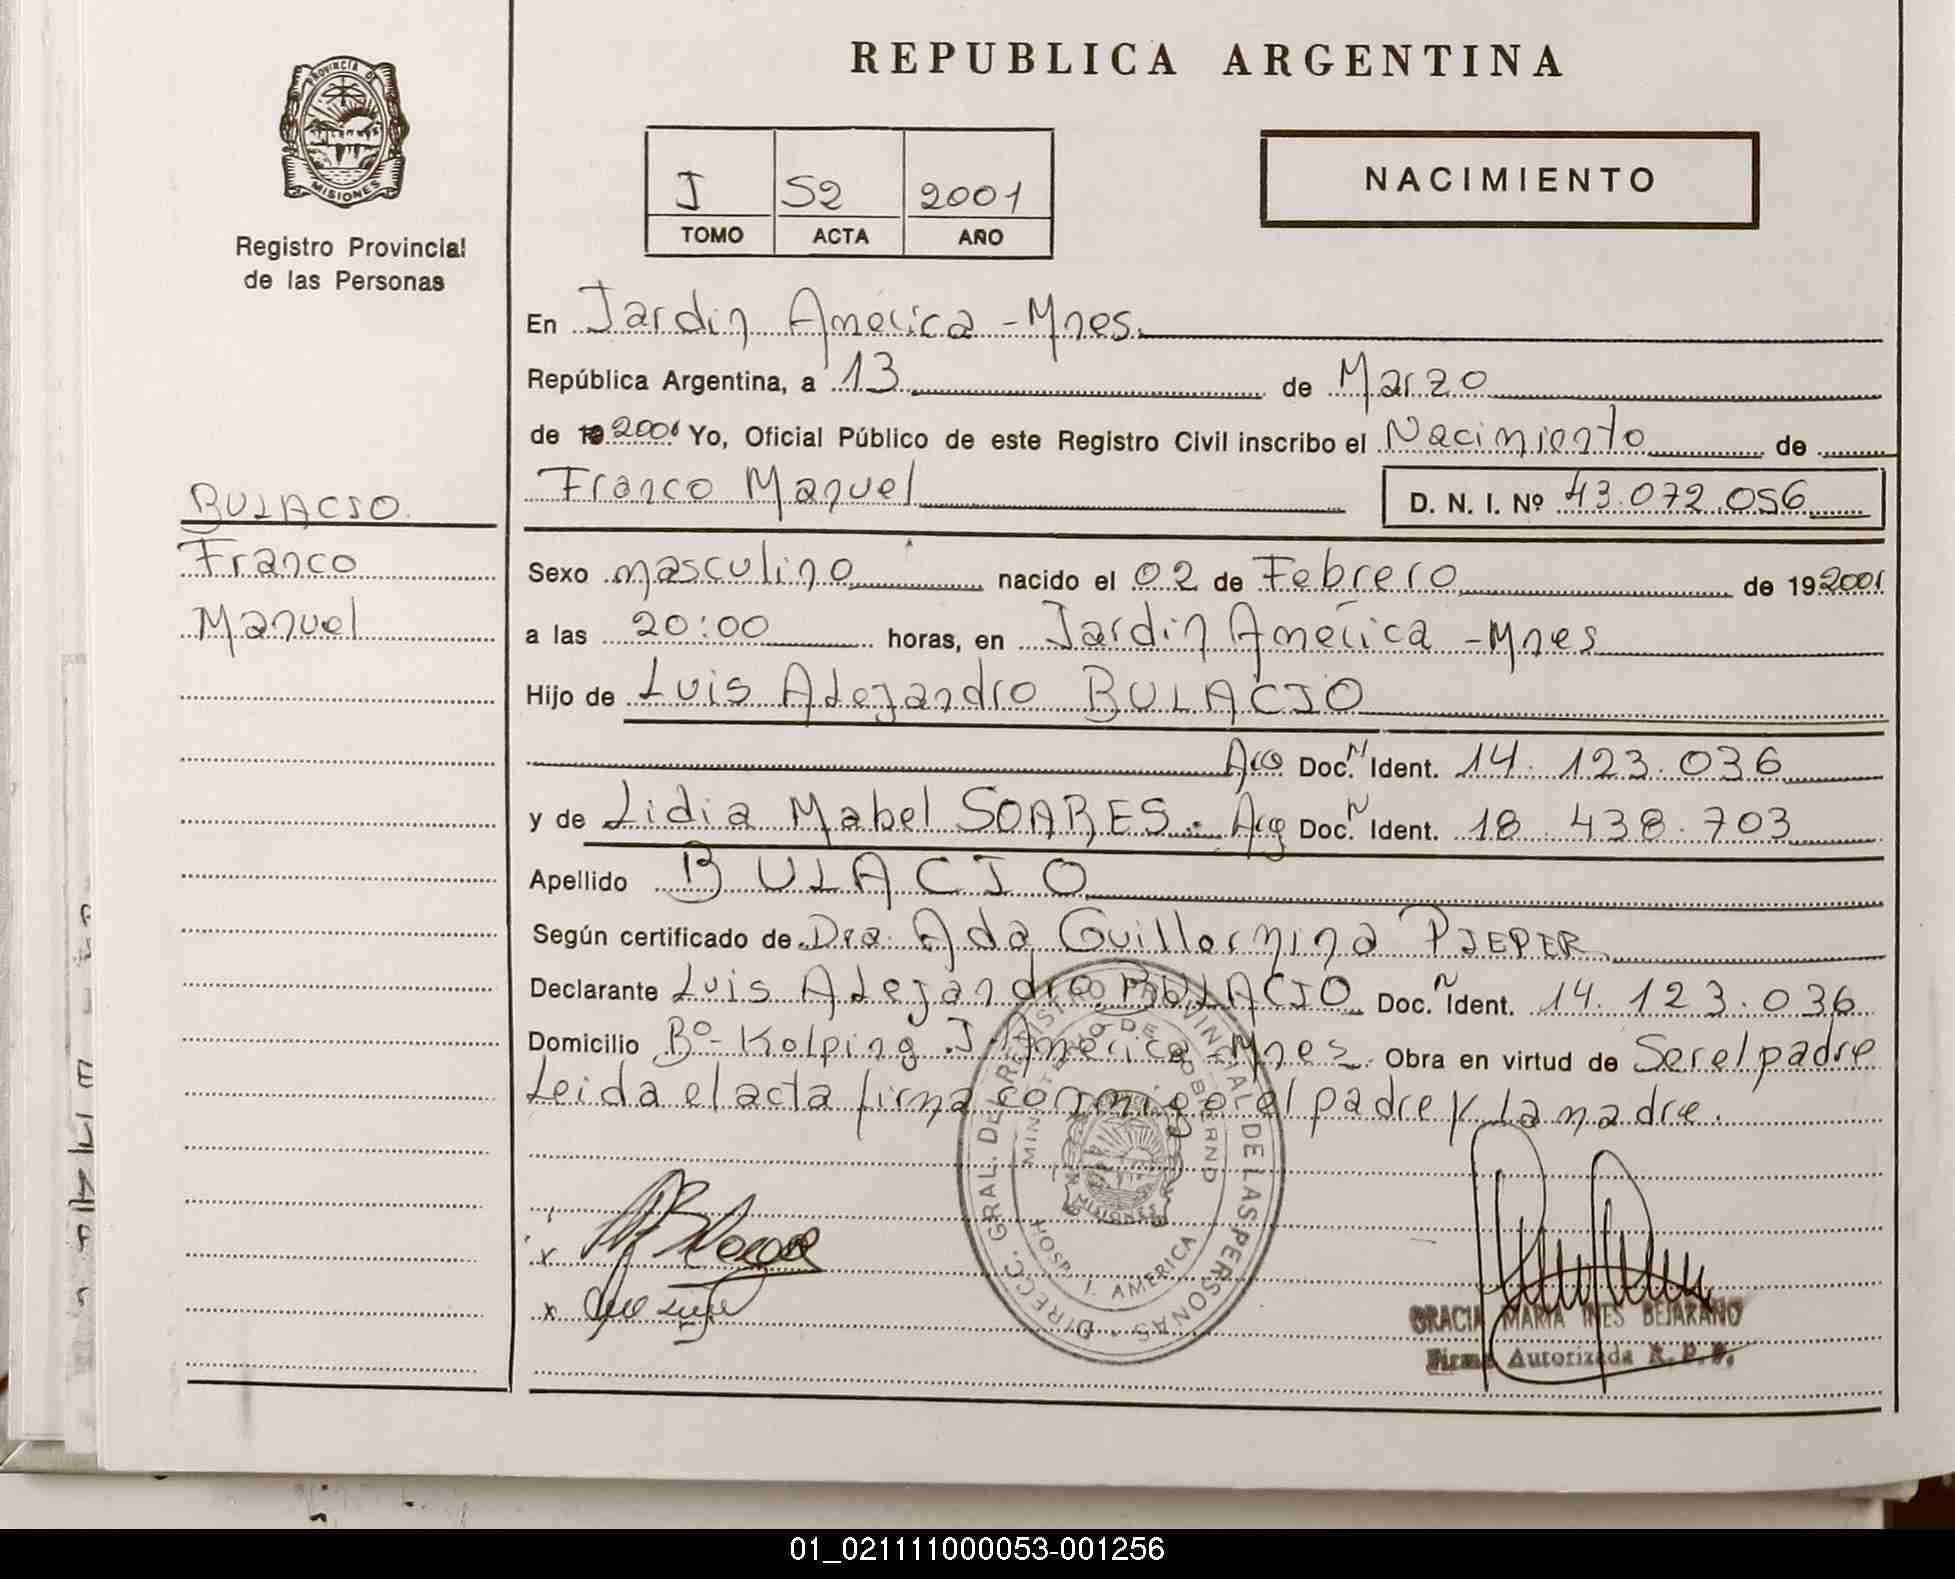 REPUBLICA ARGENTINA
PROVINCIA DE
MISIONES
Registro Provincial
de las Personas
J 52 2001
TOMO ACTA AÑO
NACIMIENTO
En Jardin América - Mnes.
República Argentina, a 13 de Marzo
de 19 2001 Yo, Oficial Público de este Registro Civil inscribo el Nacimiento de
Franco Manuel D. N. I. Nº 43.072.056
BULACIO.
Franco
Manuel
Sexo masculino nacido el 02 de Febrero de 19 2001
a las 20:00 horas, en Jardin América - Mnes
Hijo de Luis Alejandro BULACIO
Arg Doc. N Ident. 14.123.036
y de Lidia Mabel SOARES.- Arg Doc. N Ident. 18.438.703
Apellido BULACIO
Según certificado de Dra. Ada Guillermina PIEPER
Declarante Luis Alejandro BULACIO Doc. N Ident. 14.123.036
Domicilio Bº- Kolping J. América - Mnes. Obra en virtud de Ser el padre
Leida el acta firma conmigo el padre y la madre.
DIRECC. GRAL. DEL REGISTRO PROVINCIAL DE LAS PERSONAS
MINISTERIO DE GOBIERNO
MISIONES
HOSP. J. AMERICA
x
x
GRACIA MARIA INES BEJARANO
Firma Autorizada R. P. P.
01_021111000053-001256